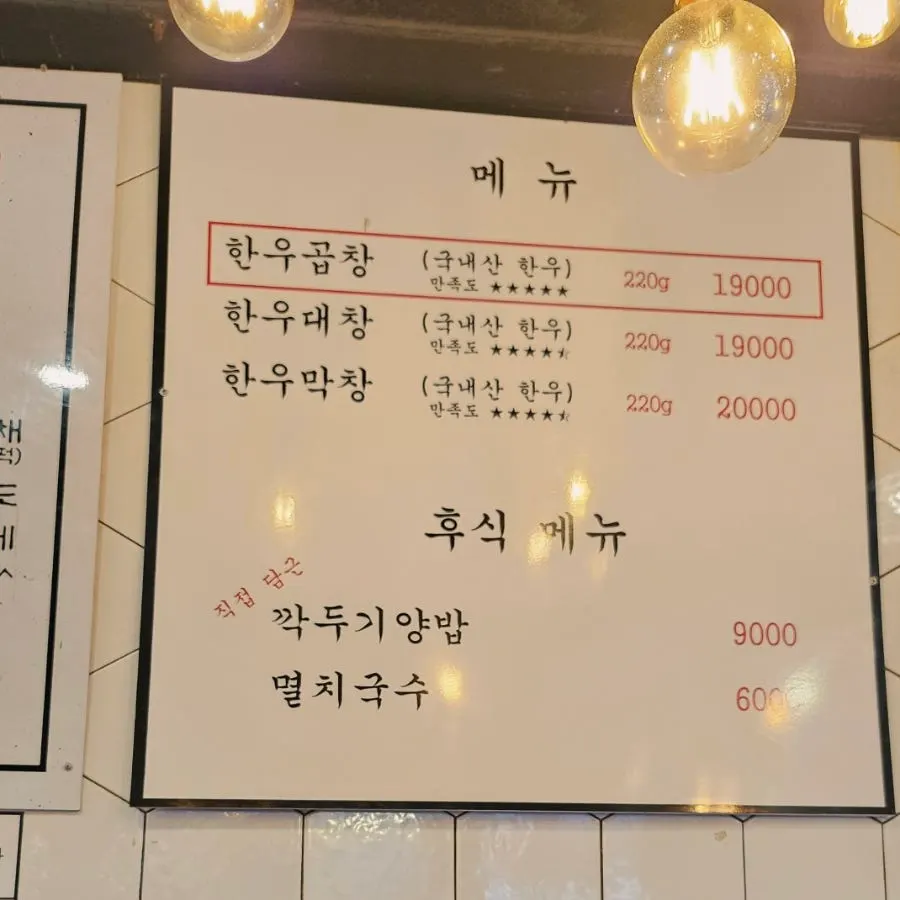 메 뉴
한우곱창 (국내산 한우) 220g 19000
만족도 ★★★★★
한우대창 (국내산 한우) 220g 19000
만족도 ★★★★⯪
한우막창 (국내산 한우) 220g 20000
만족도 ★★★★⯪
후식 메뉴
직접 담근
깍두기양밥 9000
멸치국수 6000
채
도